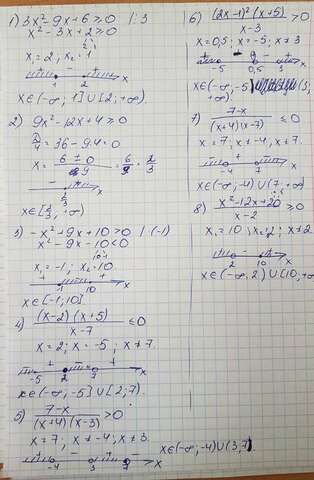 1) 3x² - 9x + 6 ≥ 0 | : 3
x² - 3x + 2 ≥ 0
x₁ = 2; x₂ = 1
+ - +
1 2 x
x∈(-∞; 1]∪[2; +∞).
2) 9x² - 12x + 4 ≥ 0
D/4 = 36 - 9·4 = 0
x = (6 ± 0)/9 = 6/9 = 2/3
- +
2/3 x
x∈[2/3; +∞)
3) -x² + 9x + 10 > 0 | ·(-1)
x² - 9x - 10 < 0
x₁ = -1; x₂ = 10
+ - +
-1 10 x
x∈[-1; 10].
4) (x-2)(x+5)/(x-7) ≤ 0
x = 2; x = -5; x ≠ 7.
- + - +
-5 2 7 x
x∈(-∞; -5]∪[2; 7).
5) (7-x)/((x+4)(x-3)) > 0
x = 7; x ≠ -4; x ≠ 3.
-4 3 7 x
x∈(-∞; -4)∪(3; 7).
6) (2x-1)²(x+5)/(x-3) > 0
x = 0,5; x = -5; x ≠ 3
-5 0,5 3 x
x∈(-∞; -5) (3;
+∞).
7) (7-x)/((x+4)(x-7)) ≤ 0
x = 7; x ≠ -4; x ≠ 7.
-4 7 x
x∈(-∞; -4)∪(7; +∞)
8) (x² - 12x + 20)/(x-2) ≥ 0
x₁ = 10; x₂ = 2; x ≠ 2
2 10 x
x∈(-∞; 2)∪[10; +∞